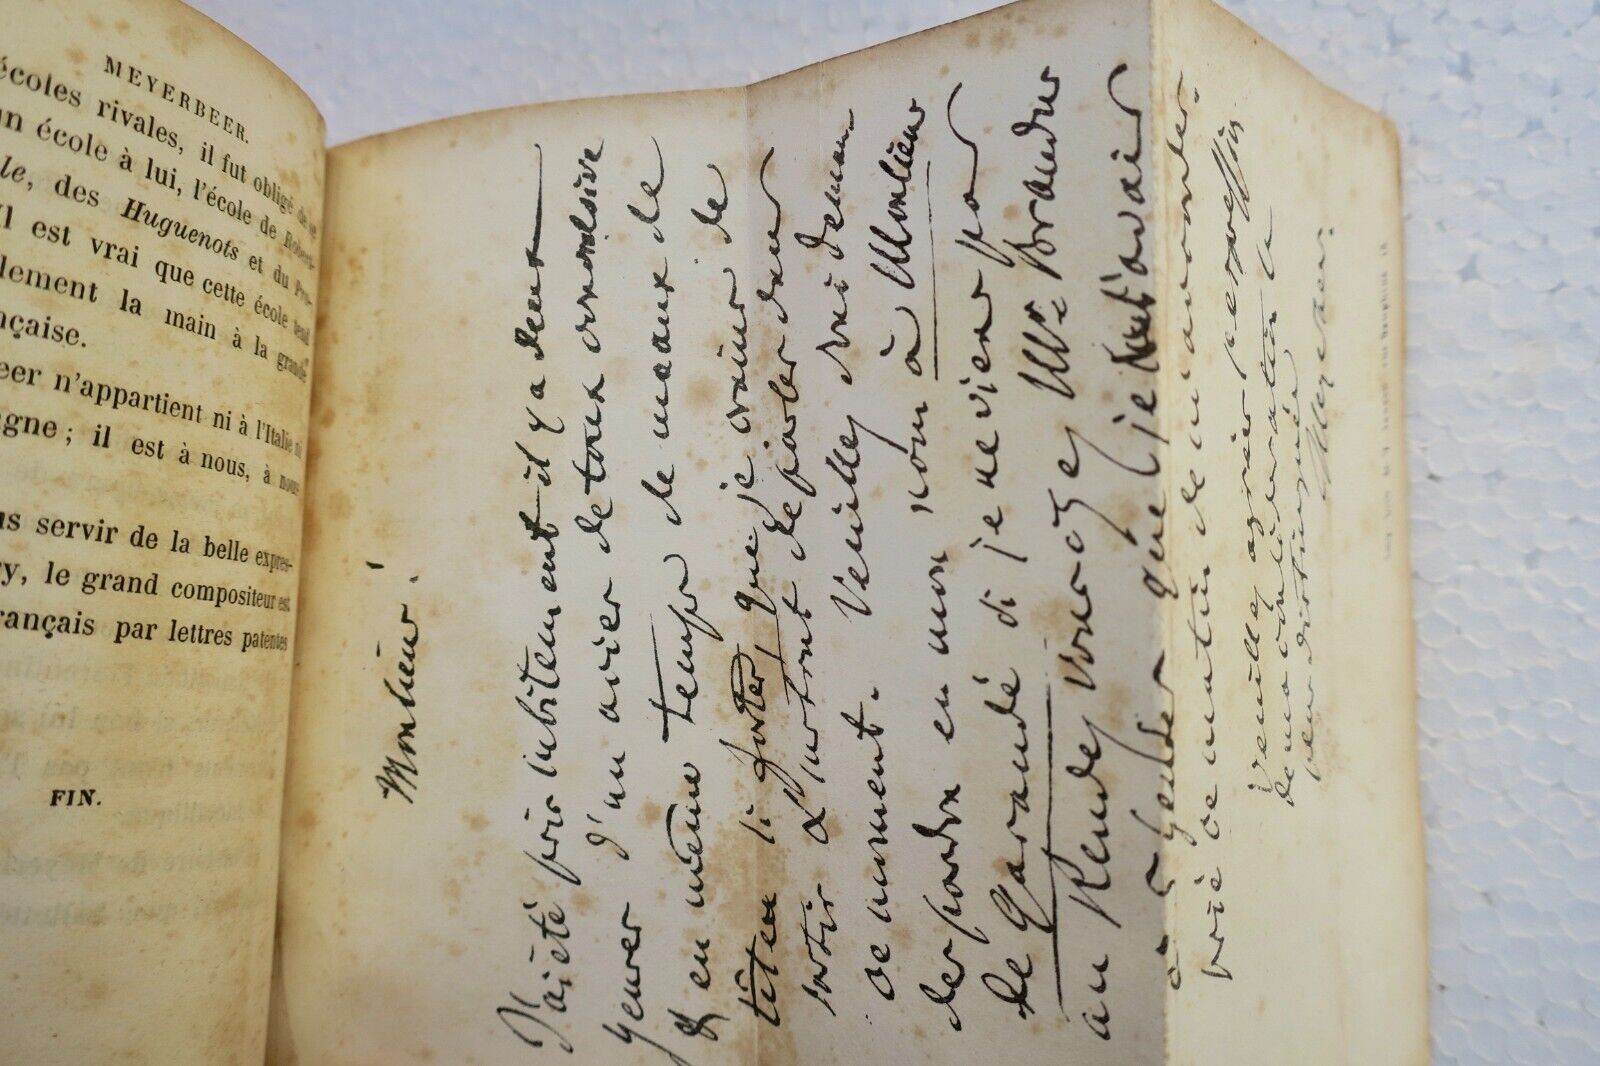 MEYERBEER.
écoles rivales, il fut obligé de se
un école à lui, l'école de Robert-
le, des Huguenots et du Pro-
Il est vrai que cette école tend
lement la main à la grande
nçaise.
eer n'appartient ni à l'Italie ni
gne ; il est à nous, à nous
us servir de la belle expres-
ry, le grand compositeur est
rançais par lettres patentes
FIN.
Monsieur!
J'ai été pris subitement il y a deux
jours d'un accès de toux convulsive
& en même temps de maux de
têtes si fortes, que je crains de
sortir & surtout de parler dans
ce moment. Veuillez donc deman-
der pardon en mon nom à Monsieur
De Garaudé si je ne viens pas
au Rendez vous chez Mr Brandus
à 5 heures que je
prié ce matin de m'accorder.
Veuillez agréer l'expression
de ma considération la
plus distinguée
Meyerbeer.